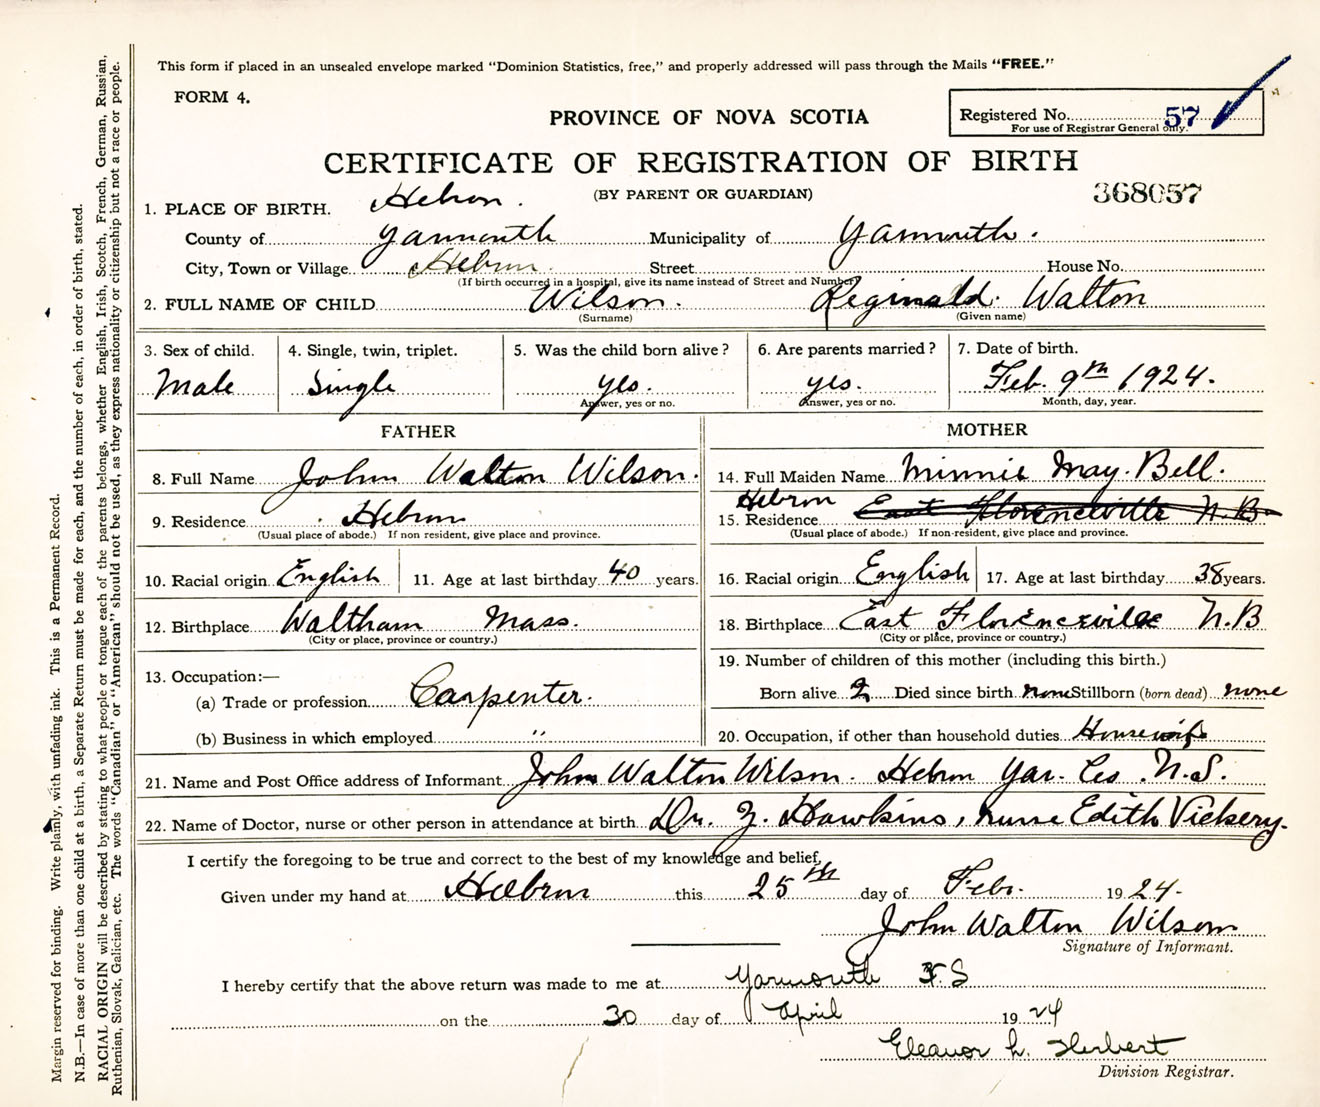 This form if placed in an unsealed envelope marked "Dominion Statistics, free," and properly addressed will pass through the Mails "FREE."
FORM 4.
PROVINCE OF NOVA SCOTIA
Registered No. 57
For use of Registrar General only.
CERTIFICATE OF REGISTRATION OF BIRTH
(BY PARENT OR GUARDIAN)
368057
1. PLACE OF BIRTH. Hebron.
County of Yarmouth Municipality of Yarmouth.
City, Town or Village Hebron. Street House No.
(If birth occurred in a hospital, give its name instead of Street and Number)
2. FULL NAME OF CHILD Wilson. Reginald. Walton
(Surname) (Given name)
3. Sex of child. 4. Single, twin, triplet. 5. Was the child born alive? 6. Are parents married? 7. Date of birth.
Male Single yes. yes. Feb. 9th 1924.
Answer, yes or no. Answer, yes or no. Month, day, year.
FATHER MOTHER
8. Full Name John Walton Wilson. 14. Full Maiden Name Minnie May. Bell.
9. Residence Hebron 15. Residence Hebron East Florenceville N.B
(Usual place of abode.) If non resident, give place and province. (Usual place of abode.) If non-resident, give place and province.
10. Racial origin English 11. Age at last birthday 40 years. 16. Racial origin English 17. Age at last birthday 38 years.
12. Birthplace Waltham Mass. 18. Birthplace East Florenceville N.B
(City or place, province or country.) (City or place, province or country.)
13. Occupation:— 19. Number of children of this mother (including this birth.)
(a) Trade or profession Carpenter. Born alive 2 Died since birth none Stillborn (born dead) none
(b) Business in which employed " 20. Occupation, if other than household duties Housewife
21. Name and Post Office address of Informant John Walton Wilson. Hebron Yar. Co. N.S.
22. Name of Doctor, nurse or other person in attendance at birth Dr. Z. Hawkins, nurse Edith Vickery.
I certify the foregoing to be true and correct to the best of my knowledge and belief,
Given under my hand at Hebron this 25th day of Feb. 1924.
John Walton Wilson
Signature of Informant.
I hereby certify that the above return was made to me at Yarmouth N.S
on the 30 day of April 1924
Eleanor L. Herbert
Division Registrar.
Margin reserved for binding. Write plainly, with unfading ink. This is a Permanent Record.
N.B.—In case of more than one child at a birth, a Separate Return must be made for each, and the number of each, in order of birth, stated.
RACIAL ORIGIN will be described by stating to what people or tongue each of the parents belongs, whether English, Irish, Scotch, French, German, Russian,
Ruthenian, Slovak, Galician, etc. The words "Canadian" or "American" should not be used, as they express nationality or citizenship but not a race or people.